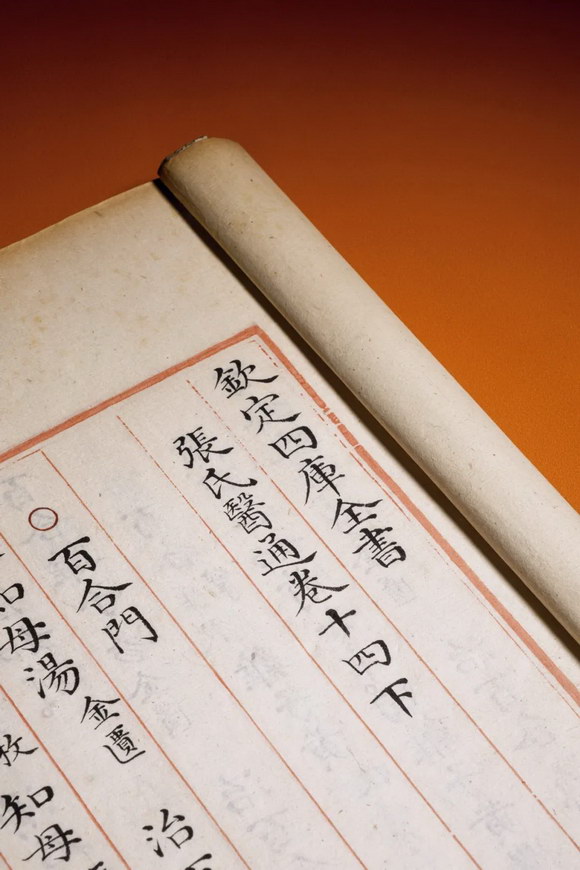 欽定四庫全書
張氏醫通卷十四下
百合門
知母湯 金匱 治
枚 知母